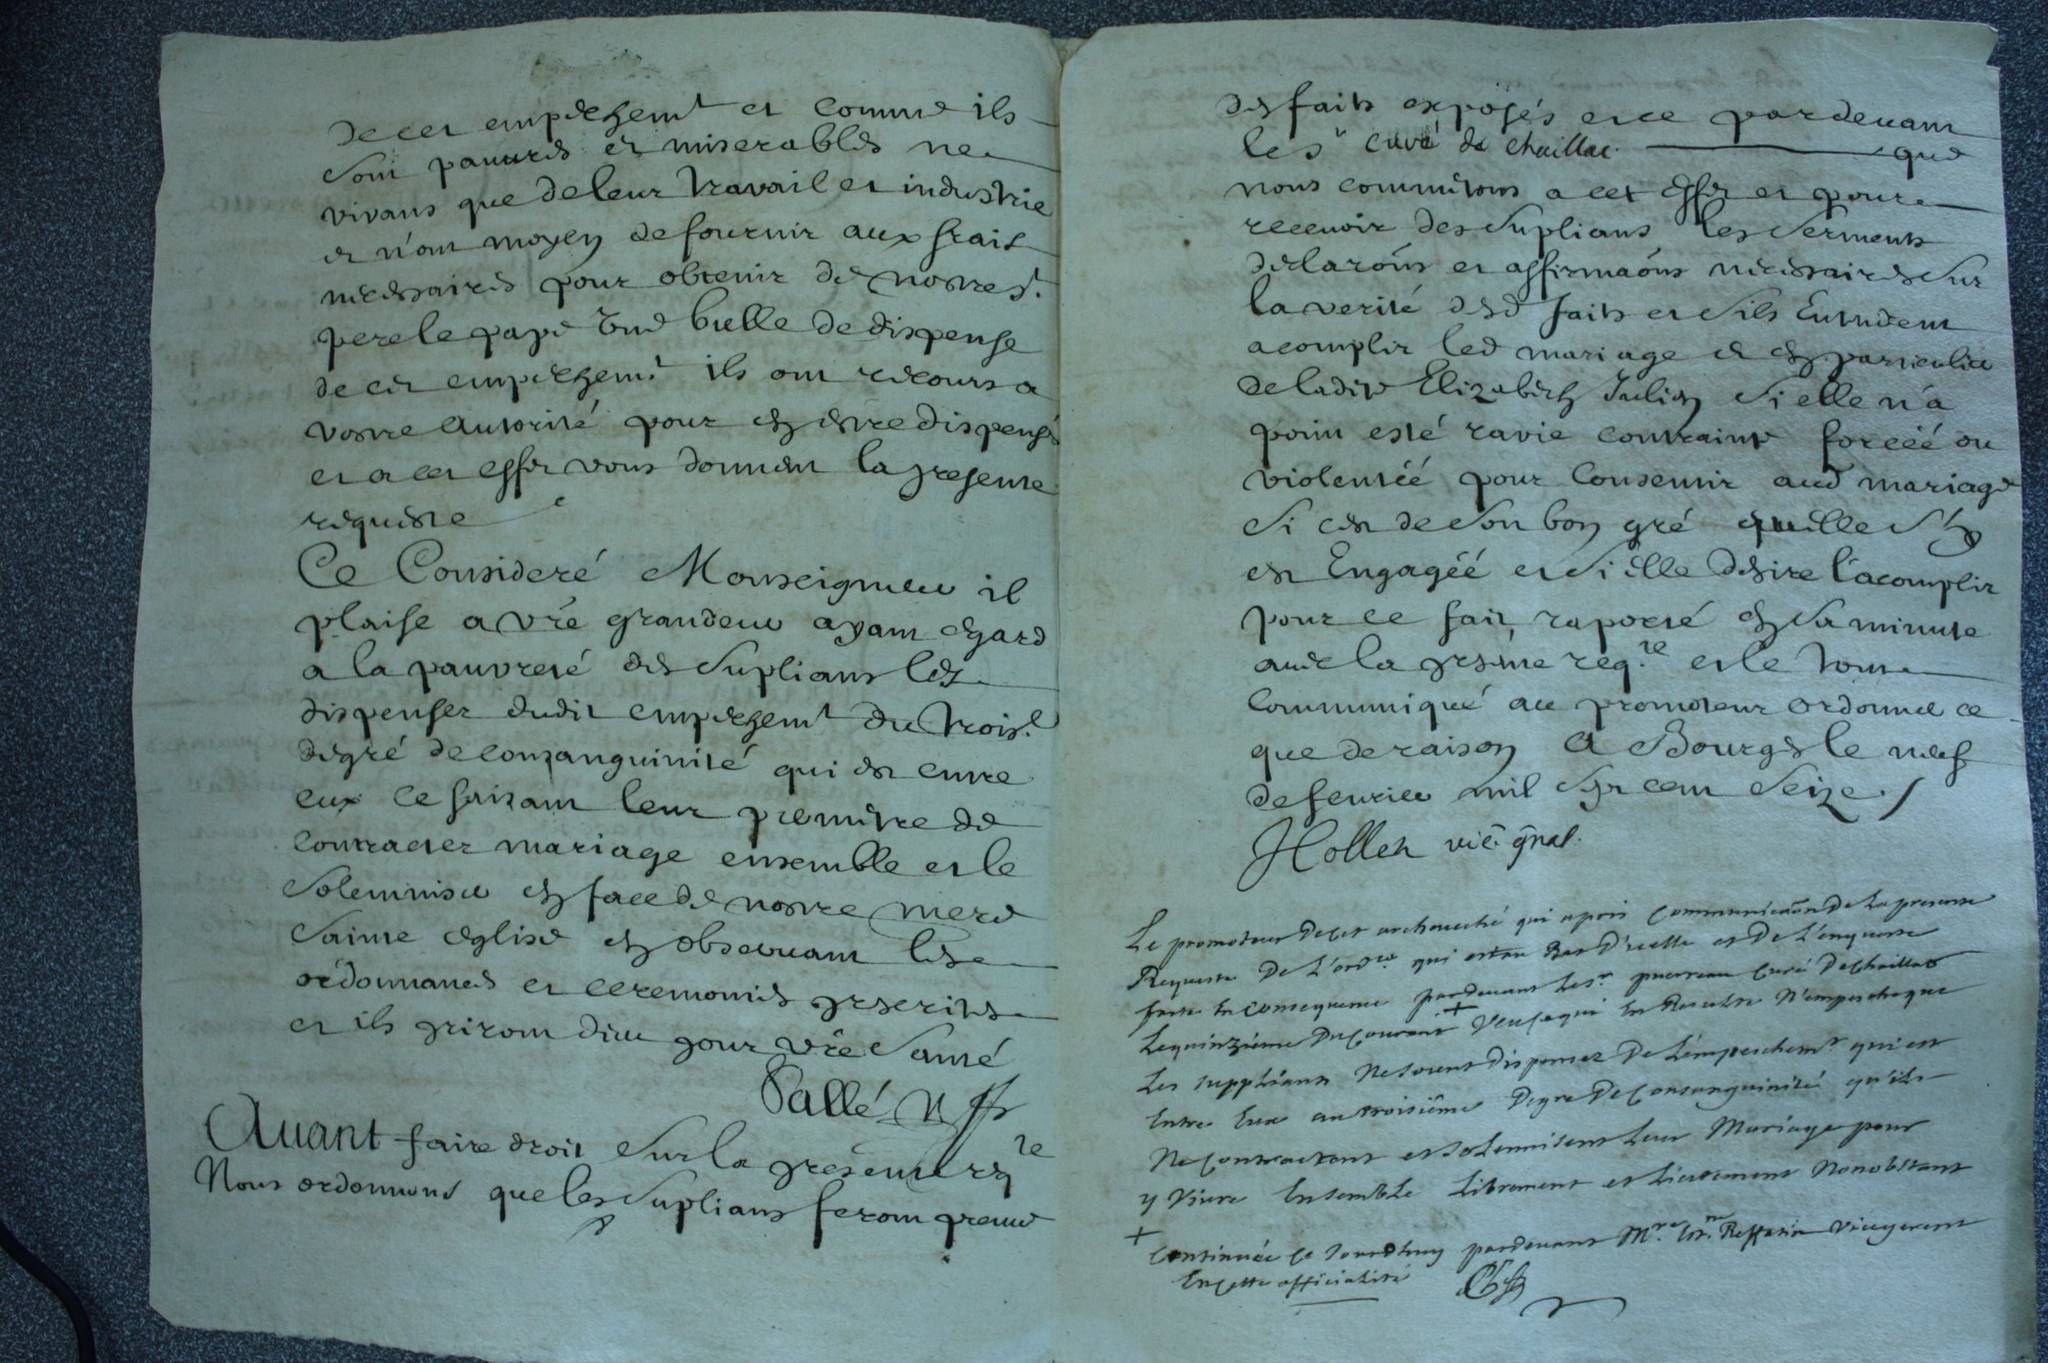 de cet empeschemt et comme ils
sont pauvres et miserables ne
vivans que de leur travail et industrie
et n'ont moyen de fournir aux frais
necessaires pour obtenir de nostre st.
pere le pape une bulle de dispense
de cet empeschemt ils ont recours a
vostre autorité pour en estre dispensés
et a cet effet vous donnent la presente
requeste
Ce Consideré Monseigneur il
plaise a vrẽ grandeur ayant egard
a la pauvreté des supliants les
dispenser dudit empeschemt du troise
degré de consanguinité qui est entre
eux ce faisant leur permettre de
contracter mariage ensemble et le
solemniser en face de nostre mere
sainte eglise en observant les
ordonnances et ceremonies prescrites
et ils priront dieu pour vrẽ santé
Pallé
Avant faire droit sur la presente reqte
Nous ordonnons que les suplians feront preuve
des faits exposés et ce pardevant
le sr curé de chaillac que
nous commetons a cet effet et pour
recevoir des suplians les serments
declaroñs et affirmaoñs necessaires sur
la verité desd faits et s'ils entendent
acomplir led mariage et en particulier
de ladite Elizabeth Julien si elle n'a
point esté ravie contrainte forcéé ou
violentéé pour consentir aud mariage
si c'est de son bon gré quelle s'y
est Engagéé et si elle desire l'acomplir
pour ce fait raporté en sa minute
avec la preste reqte et le tout
communiqué au promoteur ordonner ce
que de raison A Bourges le neuf
de fevrier mil sept cent seize /
Hollen vic. gñal.
Le promoteur de cet archeveché qui a pris communicaõn de la presente
Requeste De L'ordce qui est au Bas D'icelle et De L'enqueste
faite En consequence pardevant Le sr curé De Chaillac
Le quinzième Du courant + Veu ce qui En Resulte N'empesche que
Les suppliants Ne soient dispensez De L'empeschemt qui est
Entre Eux au troisième Degre De consanguinité qu'ils
Ne contractent et solennisent Leur Mariage pour
y Vivre Ensemble Librement et Licitement Nonobstant
+ continuée ce Jourdhuy pardevant Mre Vicegerent
En cette officialité